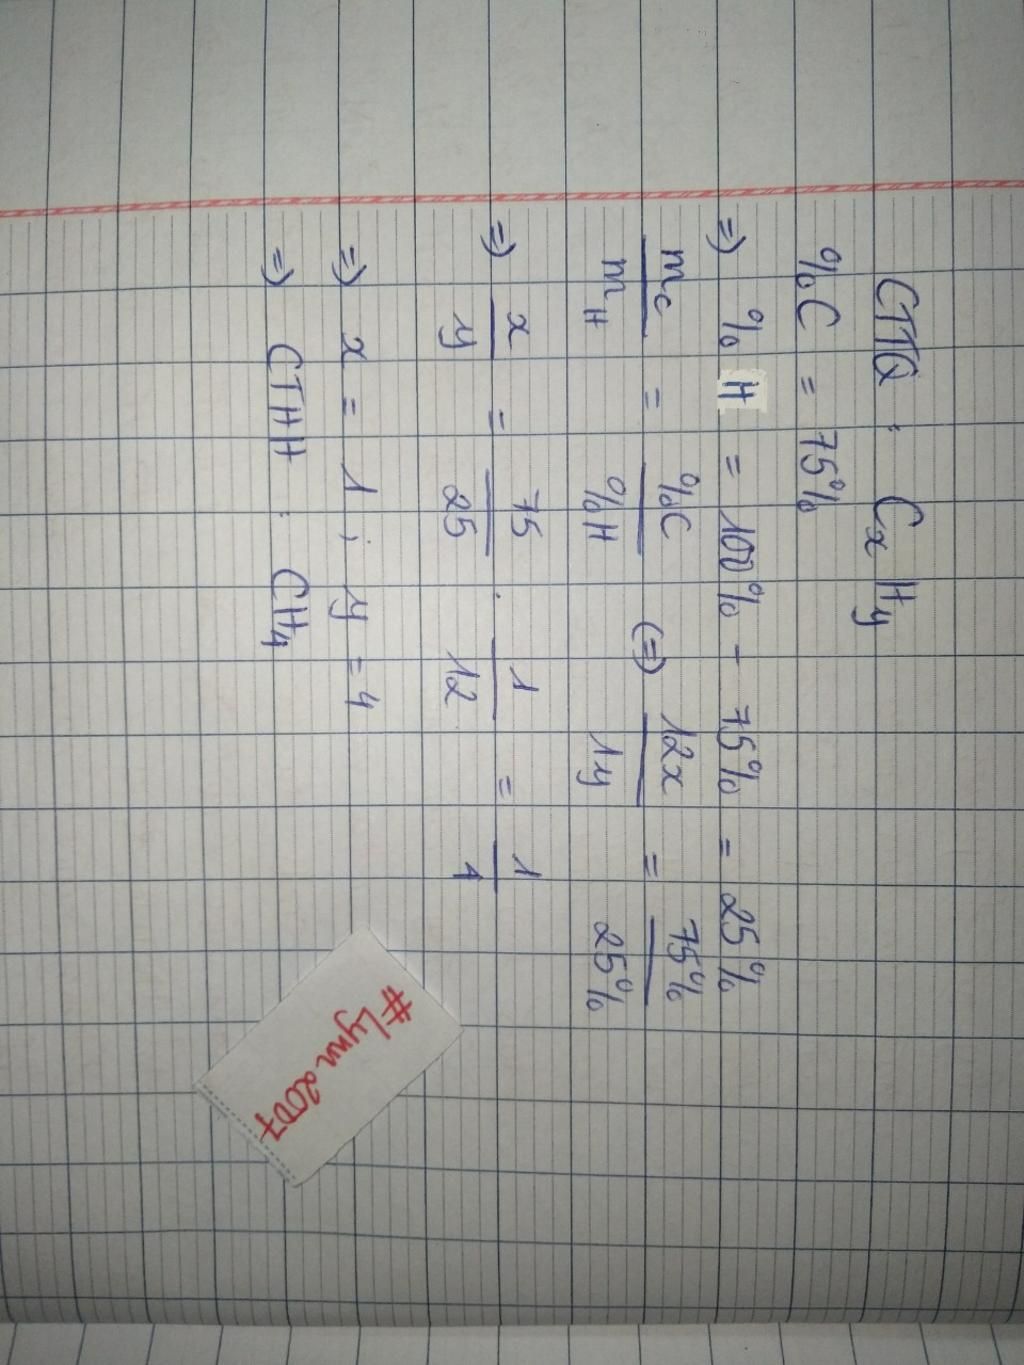 CTTQ : CxHy
%C = 75%
=) % H = 100% - 75% = 25%
mC/mH = %C/%H (=) 12x/1y = 75%/25%
=) x/y = 75/25 . 1/12 = 1/4
=) x = 1 ; y = 4
=) CTHH : CH4
#Lynn2007